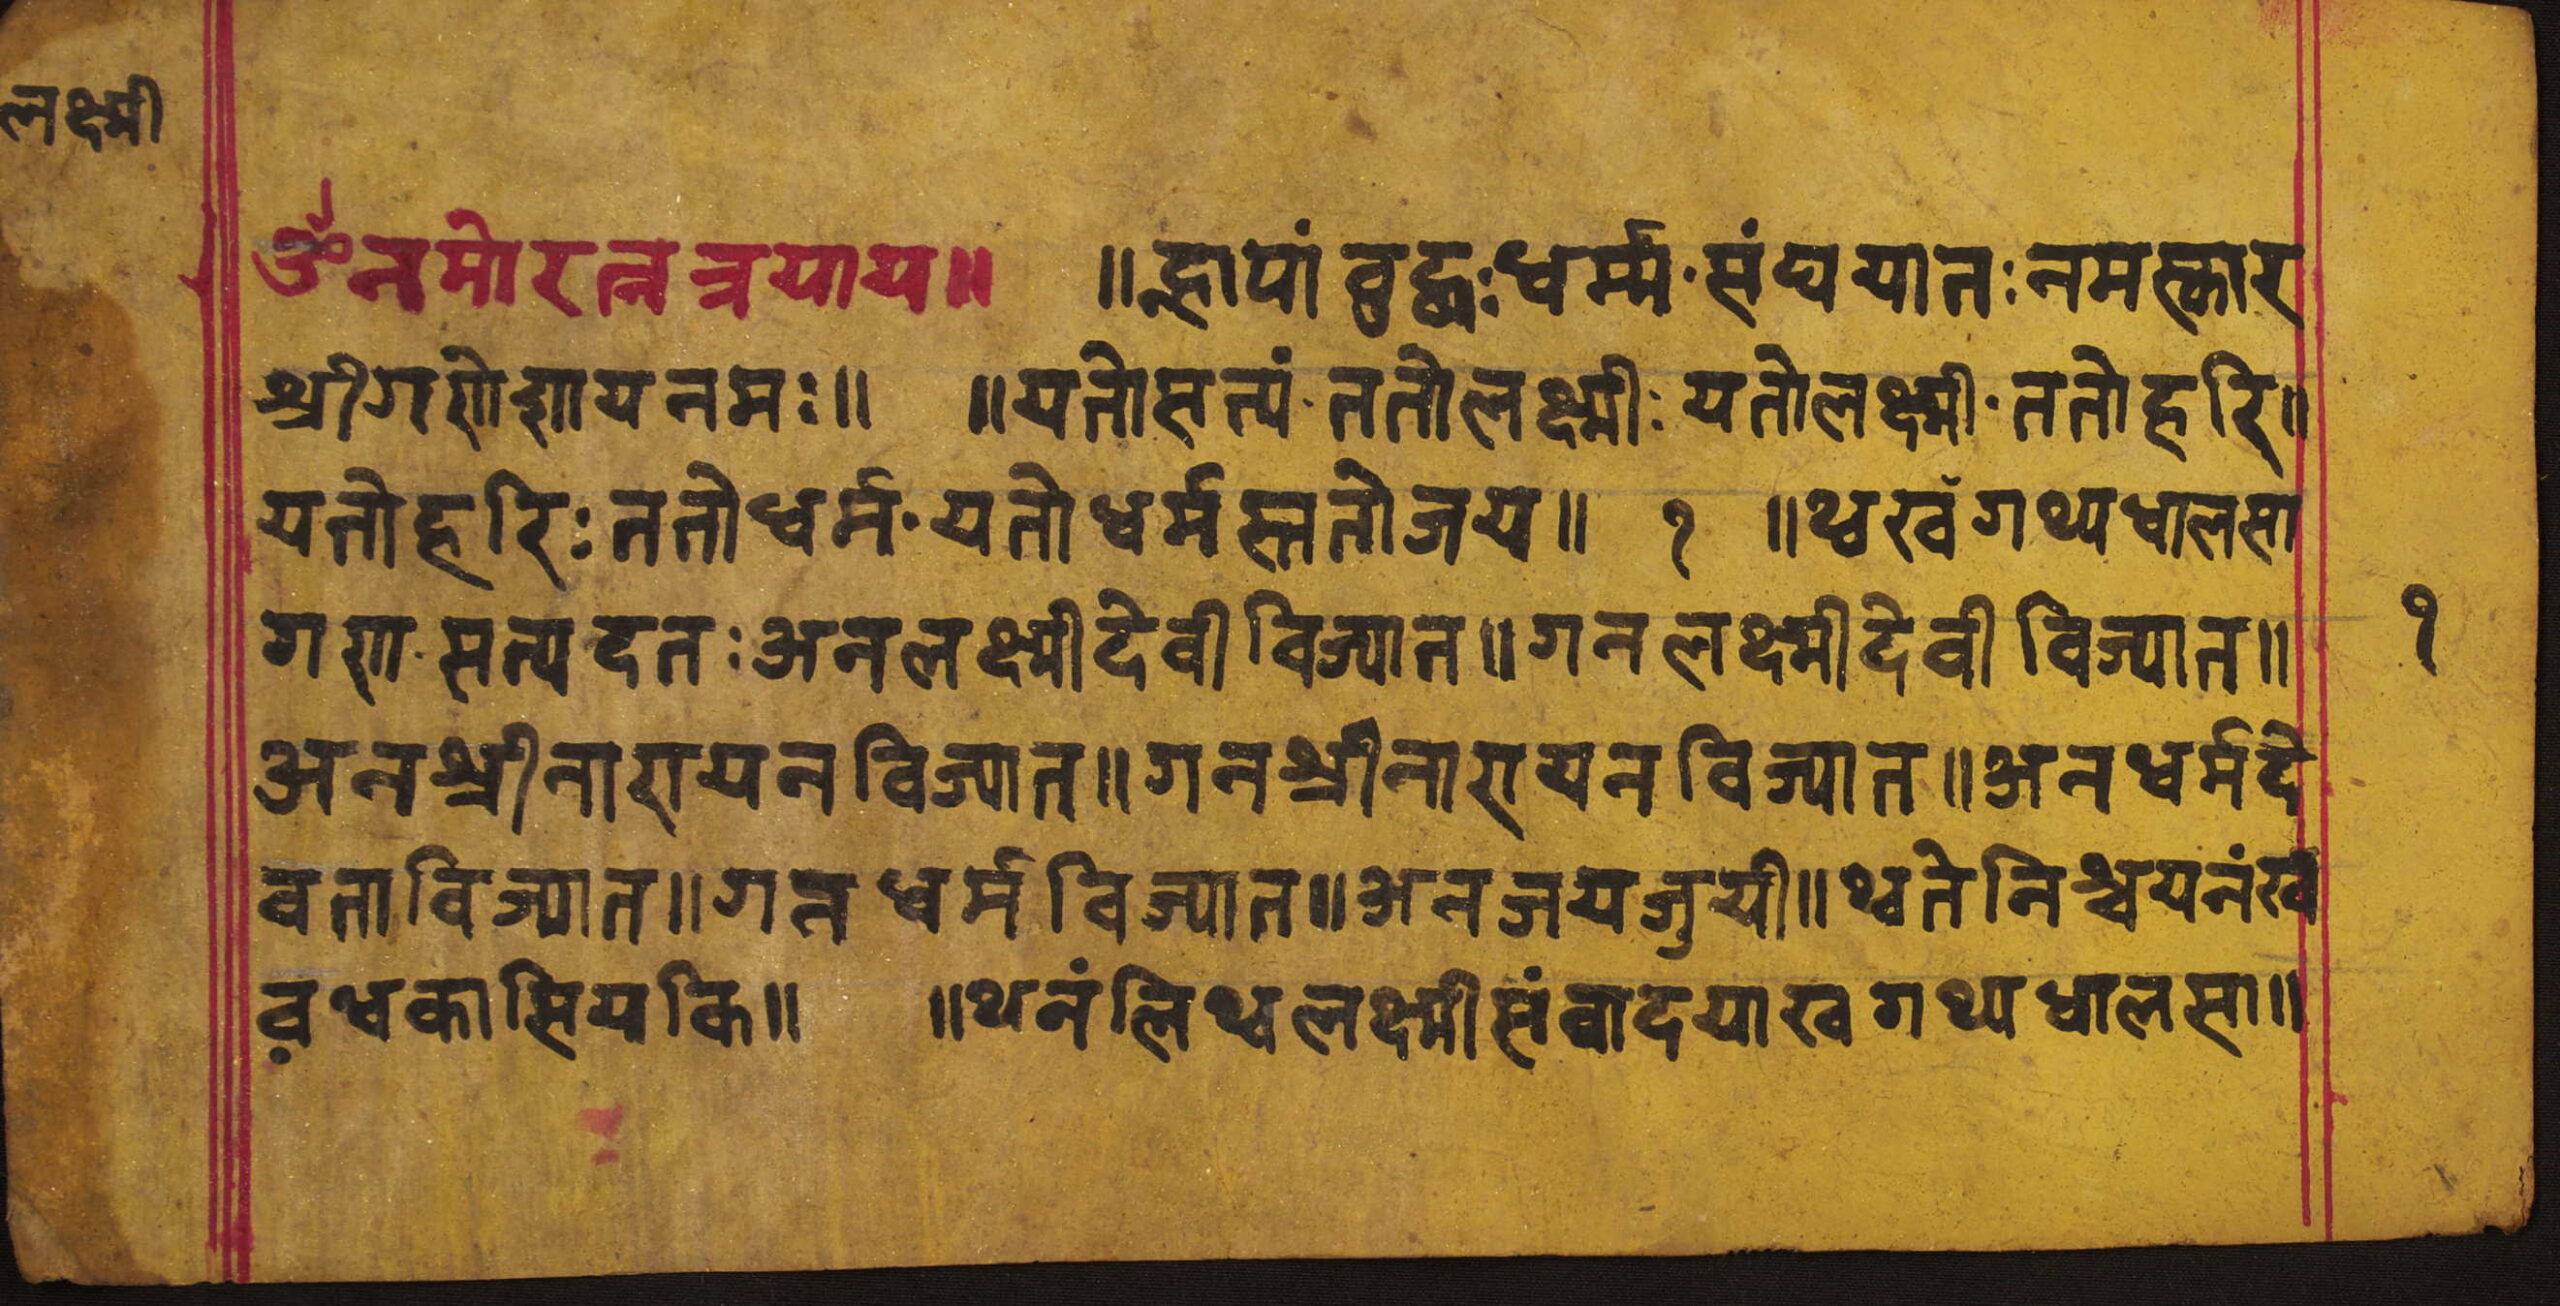 लक्ष्मी
ॐ नमो रत्न त्रयाय॥ ॥ह्नापां बुद्धः धर्म्म·संघ यातः नमस्कार
श्रीगणेशाय नमः॥ ॥यतो सत्यं·ततो लक्ष्मीः यतो लक्ष्मी·ततो हरि॥
यतो हरिः ततो धर्म·यतो धर्मस्ततो जय॥ १ ॥थ्व खँ गथ्य धालसा
गण·सत्य दतः अन लक्ष्मी देवी विज्यात॥ गन लक्ष्मी देवी विज्यात॥
१
अन श्रीनारायन विज्यात॥ गन श्रीनारायन विज्यात॥ अन धर्म दे
वता विज्यात॥ गन धर्म विज्यात॥ अन जय जुयी॥ थ्वते निश्चयनं खँ
व थ्वका सियकि॥ ॥थनंलि थ्व लक्ष्मी संवादया ख गथ्य धालसा॥